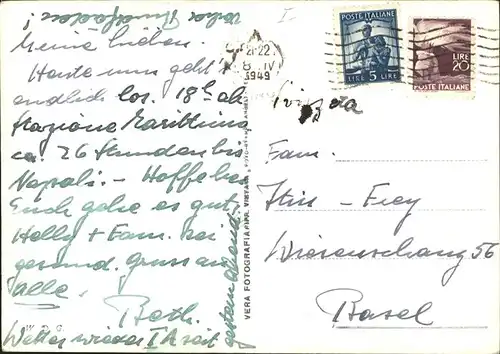 vorher Thunfischen!
Meine Lieben.
Heute nun geht's
endlich los. 18h ab
Stazione Marittima
ca. 26 Stunden bis
Napoli. – Hoffe bei
Euch gehe es gut.
Helly + Fam. sei
gesund. Gruss an
alle.
Beth.
Wetter wieder I A seit
gestern abend.
VERA FOTOGRAFIA
POSTE ITALIANE
LIRE 5 LIRE
LIRE 20
POSTE ITALIANE
21-22
8 IV
1949
Svizzera
Fam.
Itin - Frey
Wiesenschanz 56
Basel